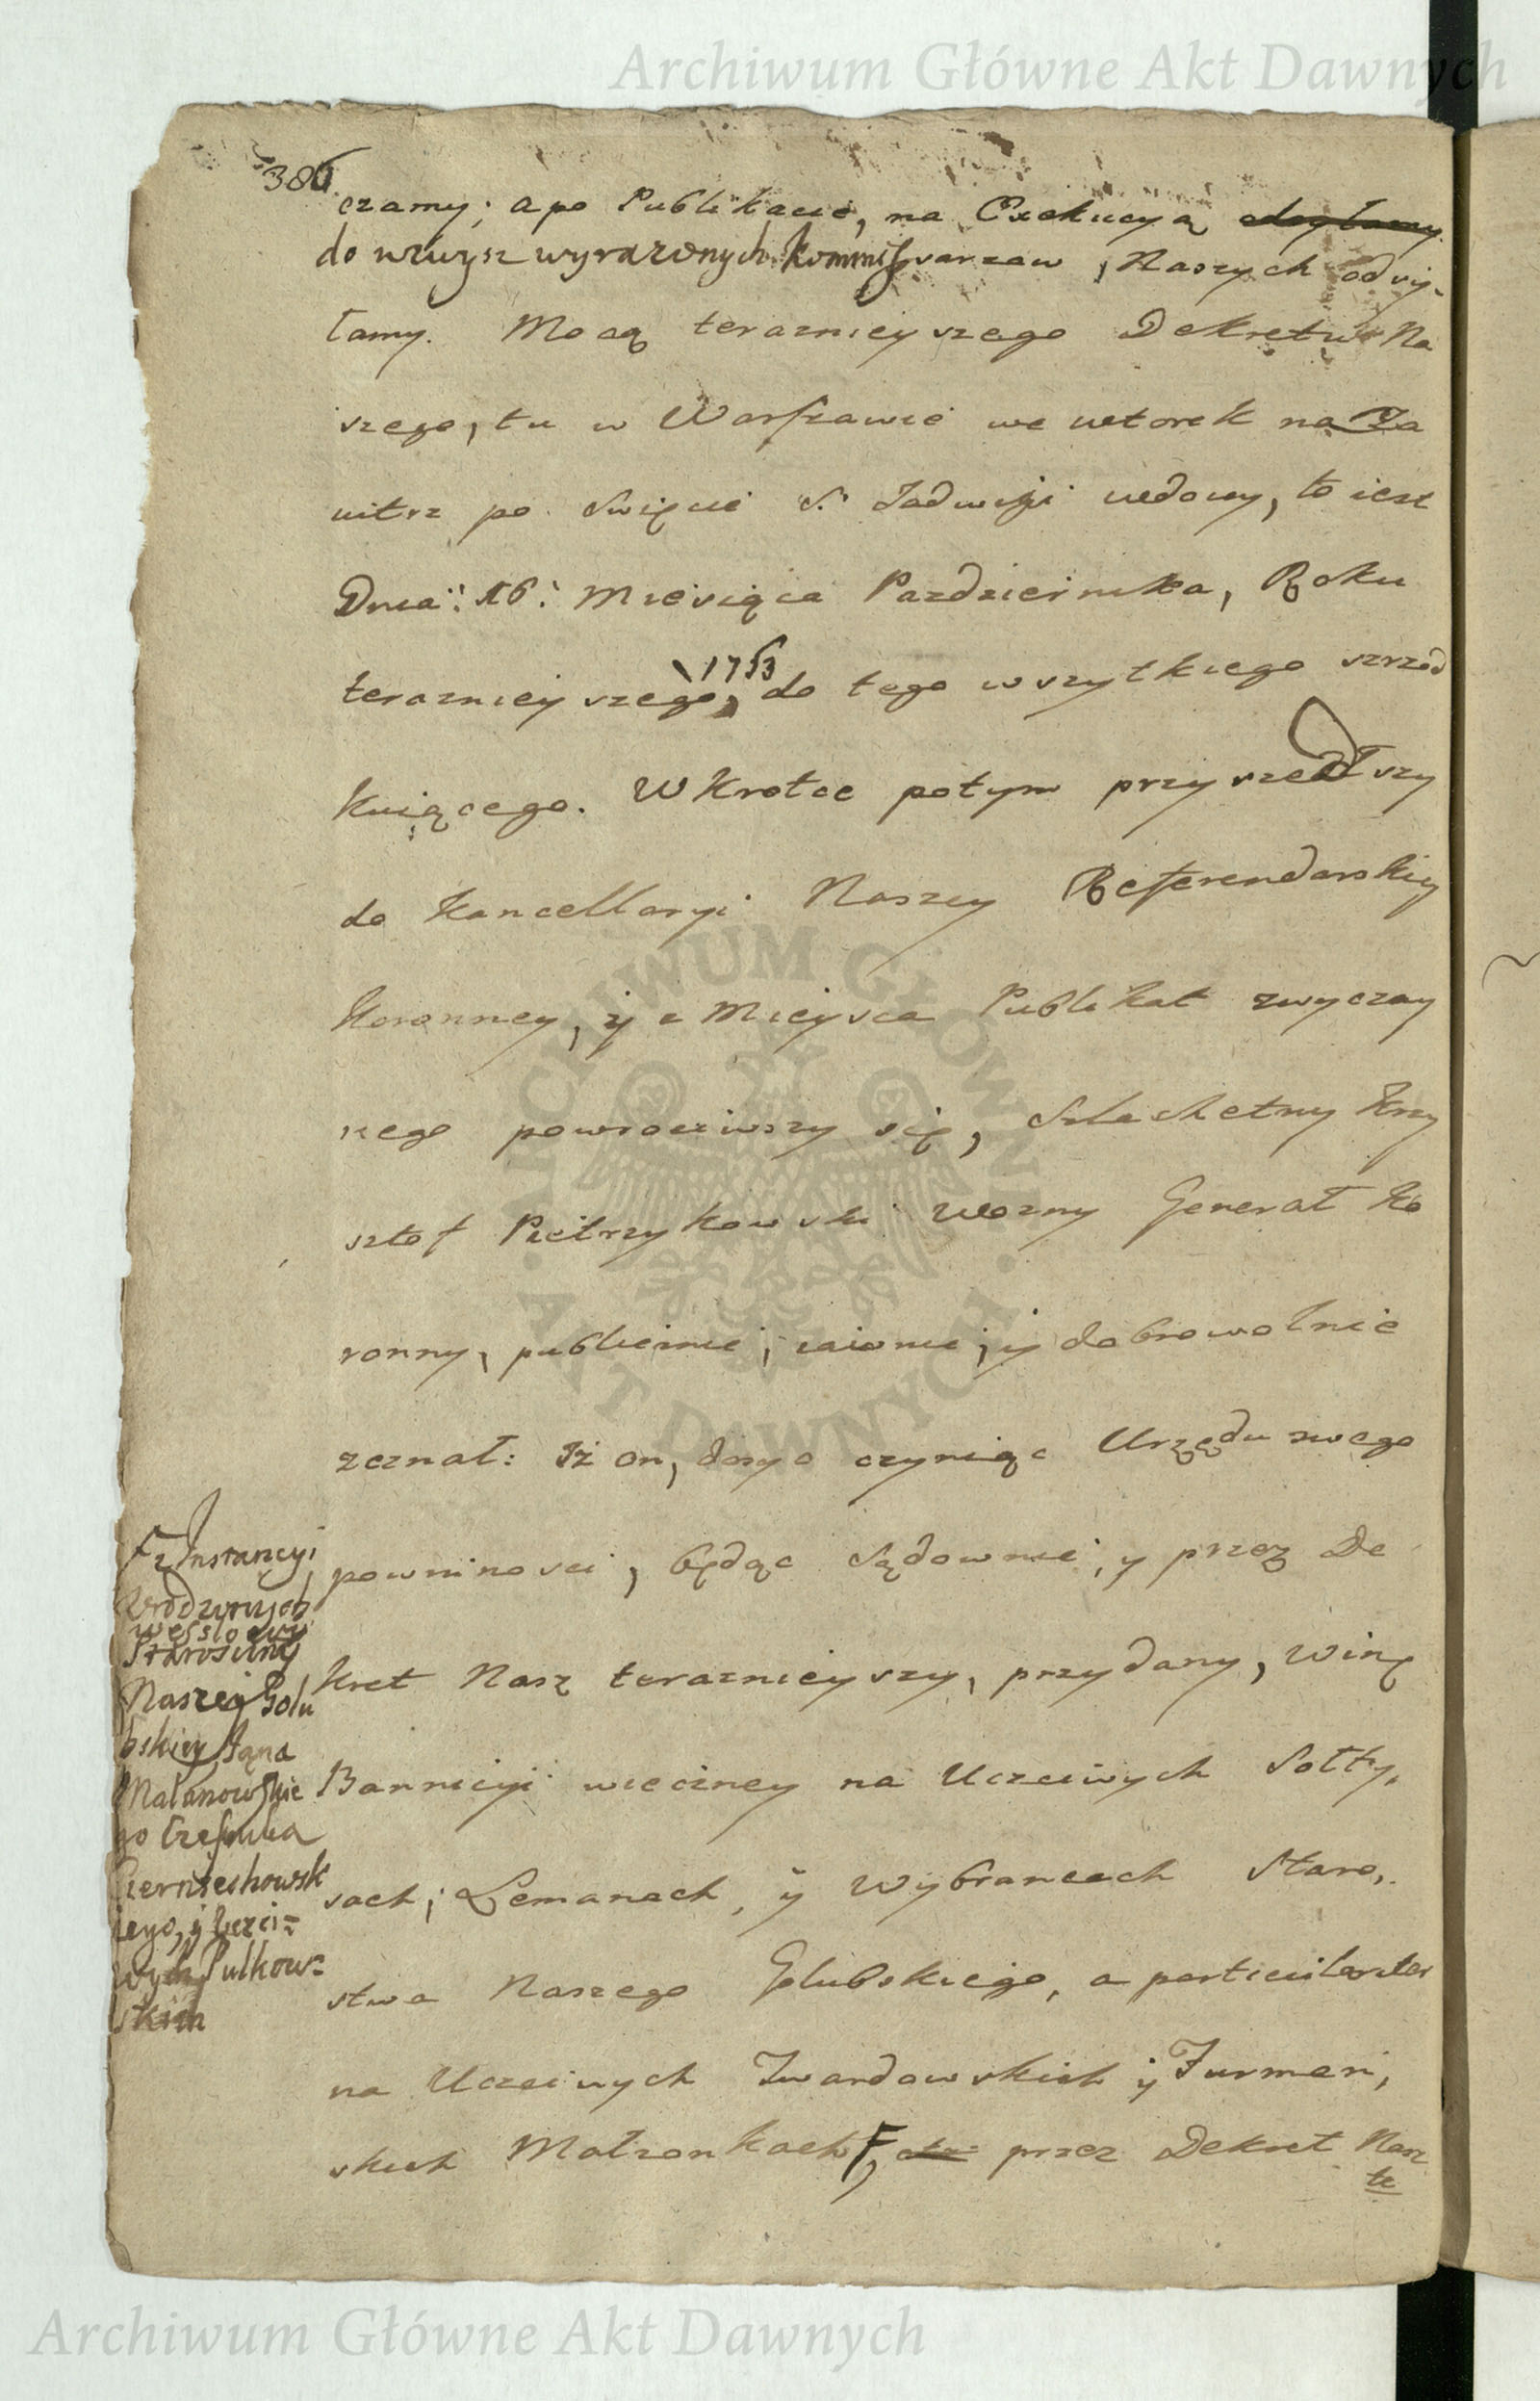 Archiwum Główne Akt Dawnych
386
czamy; a po Publikacie, na Exekucyą odsyłamy
do wzwysz wyrazonych Kommissarzow, Naszych odsy-
łamy. Mocą teraznieyszego Dekretu Na
szego, tu w Warszawie we wtorek na Za
uitrz po Swięcie S. Jadwigi wdowy, to iest
Dnia: 16: Miesiąca Pazdziernika, Roku
1753
teraznieyszego, do tego wszytkiego szrzod
kuiącego. Wkrotce potym przyszedłszy
do Kancellaryi Naszey Referendarskiey
Koronney, y z Mieysca Publikat zwyczay
nego powrociwszy się, Szlachetny Krzy
sztof Pietrzykowski Wozny Generał Ko
ronny, publicznie, iawnie, y dobrowolnie
zeznał: Iż on, dosyc czyniąc Urzędu swego
powinnosci, będąc Sądownie, y przez De
kret Nasz teraznieyszy, przydany, winę
Bannicyi wieczney na Uczciwych Sołty,
sach, Lemanach, y Wybrancach Staro,
stwa Naszego Golubskiego, a particulariter
na Uczciwych Twardowskich y Furmań,
skich Małzonkach, przez Dekret Nasz
te
z Instancyi
Urodzonych
Wessloowy
Starosciny
Naszey Golu
bskiey Jana
Małanowskie
go Czesnika
Cierniechowsk
iego, y Uczci-
wych Pulkow-
skich
ARCHIWUM GŁÓWNE
AKT DAWNYCH
Archiwum Główne Akt Dawnych